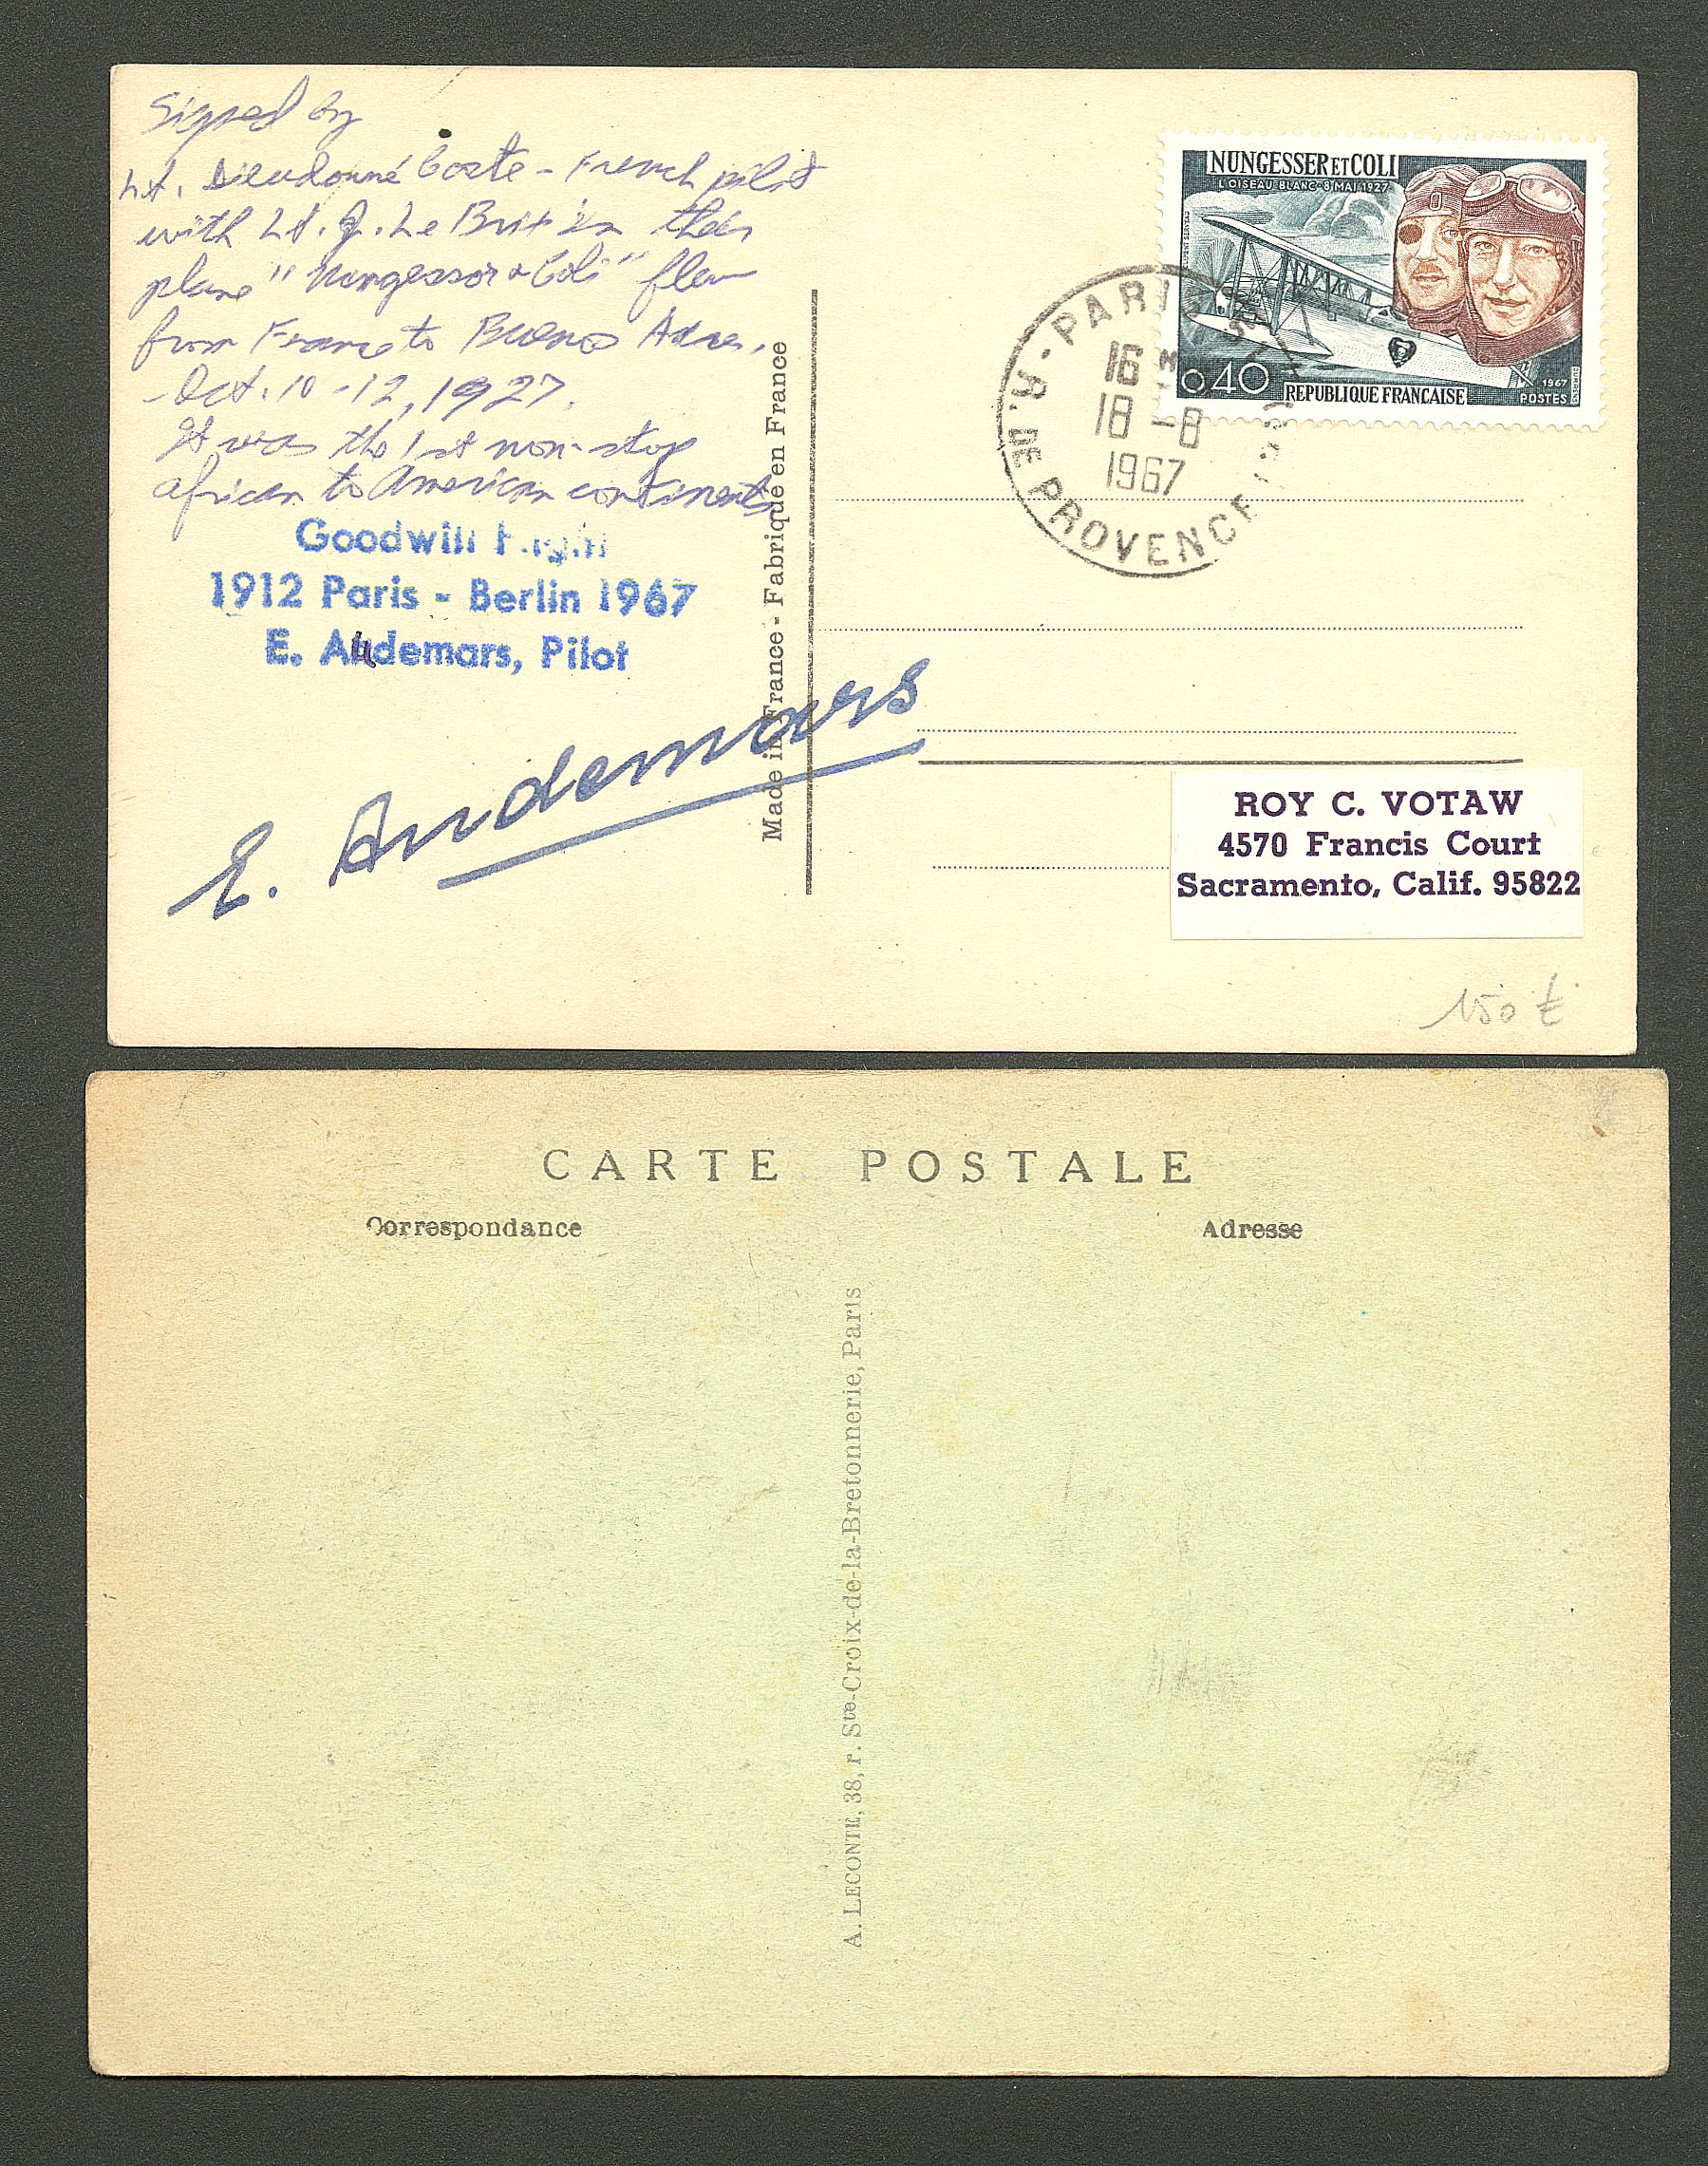 Signed by
Lt. Dieudonné Coste - French pilot
with Lt. J. Le Brix in their
plane "Nungessor & Coli" flew
from France to Buenos Aires,
- Oct. 10 - 12, 1927.
It was the 1st non-stop
african to American continents
Goodwill Flight
1912 Paris - Berlin 1967
E. Audemars, Pilot
E. Audemars
Made in France - Fabriqué en France
NUNGESSER ET COLI
L'OISEAU BLANC - 8 MAI 1927
0,40
REPUBLIQUE FRANCAISE
1967
POSTES
PARIS
16
18 - 8
1967
R. DE PROVENCE
ROY C. VOTAW
4570 Francis Court
Sacramento, Calif. 95822
150 €
CARTE POSTALE
Correspondance
Adresse
A. LECONTE, 38, r. Ste-Croix-de-la-Bretonnerie, Paris